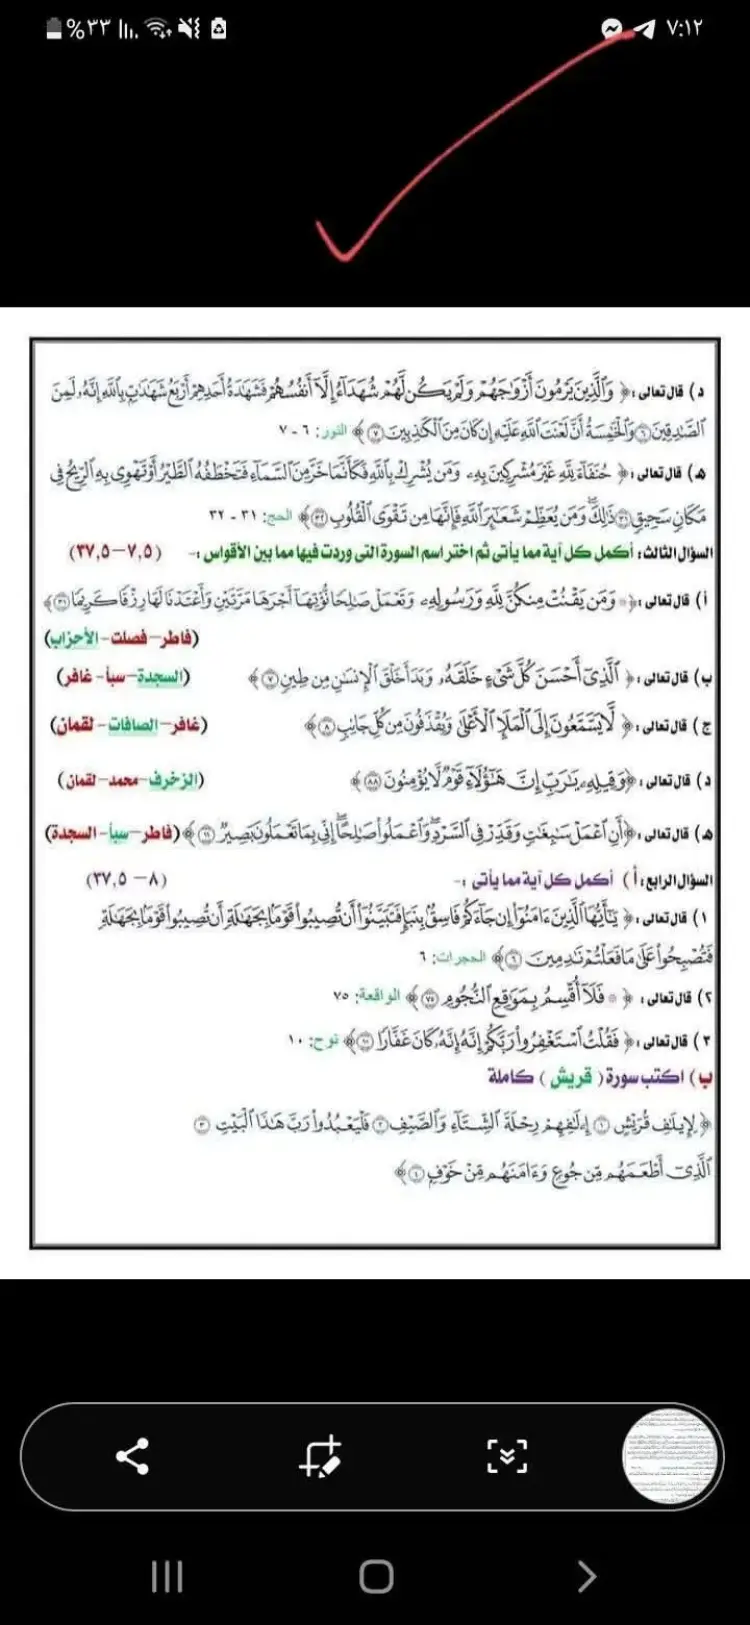 ٧:١٢ %٣٣
د) قال تعالى: ﴿ وَٱلَّذِينَ يَرْمُونَ أَزْوَٰجَهُمْ وَلَمْ يَكُن لَّهُمْ شُهَدَآءُ إِلَّآ أَنفُسُهُمْ فَشَهَٰدَةُ أَحَدِهِمْ أَرْبَعُ شَهَٰدَٰتٍ بِٱللَّهِ إِنَّهُۥ لَمِنَ
ٱلصَّٰدِقِينَ ۝٦ وَٱلْخَٰمِسَةُ أَنَّ لَعْنَتَ ٱللَّهِ عَلَيْهِ إِن كَانَ مِنَ ٱلْكَٰذِبِينَ ۝٧ ﴾ النور: ٦ - ٧
هـ) قال تعالى: ﴿ حُنَفَآءَ لِلَّهِ غَيْرَ مُشْرِكِينَ بِهِۦ وَمَن يُشْرِكْ بِٱللَّهِ فَكَأَنَّمَا خَرَّ مِنَ ٱلسَّمَآءِ فَتَخْطَفُهُ ٱلطَّيْرُ أَوْ تَهْوِى بِهِ ٱلرِّيحُ فِى
مَكَانٍ سَحِيقٍ ۝٣١ ذَٰلِكَ وَمَن يُعَظِّمْ شَعَٰٓئِرَ ٱللَّهِ فَإِنَّهَا مِن تَقْوَى ٱلْقُلُوبِ ۝٣٢ ﴾ الحج: ٣١ - ٣٢
السؤال الثالث: أكمل كل آية مما يأتى ثم اختر اسم السورة التى وردت فيها مما بين الأقواس :- (٧,٥–٣٧,٥)
أ) قال تعالى: ﴿ ۞ وَمَن يَقْنُتْ مِنكُنَّ لِلَّهِ وَرَسُولِهِۦ وَتَعْمَلْ صَٰلِحًا نُّؤْتِهَآ أَجْرَهَا مَرَّتَيْنِ وَأَعْتَدْنَا لَهَا رِزْقًا كَرِيمًا ۝٣١ ﴾
(فاطر – فصلت - الأحزاب)
ب) قال تعالى: ﴿ ٱلَّذِىٓ أَحْسَنَ كُلَّ شَىْءٍ خَلَقَهُۥ وَبَدَأَ خَلْقَ ٱلْإِنسَٰنِ مِن طِينٍ ۝٧ ﴾ (السجدة – سبأ - غافر)
ج) قال تعالى: ﴿ لَّا يَسَّمَّعُونَ إِلَى ٱلْمَلَإِ ٱلْأَعْلَىٰ وَيُقْذَفُونَ مِن كُلِّ جَانِبٍ ۝٨ ﴾ (غافر – الصافات - لقمان)
د) قال تعالى: ﴿ وَقِيلِهِۦ يَٰرَبِّ إِنَّ هَٰٓؤُلَآءِ قَوْمٌ لَّا يُؤْمِنُونَ ۝٨٨ ﴾ (الزخرف – محمد - لقمان)
هـ) قال تعالى: ﴿ أَنِ ٱعْمَلْ سَٰبِغَٰتٍ وَقَدِّرْ فِى ٱلسَّرْدِ وَٱعْمَلُوا۟ صَٰلِحًا إِنِّى بِمَا تَعْمَلُونَ بَصِيرٌ ۝١١ ﴾ (فاطر – سبأ - السجدة)
السؤال الرابع: أ) أكمل كل آية مما يأتى :- (٨ – ٣٧,٥)
١) قال تعالى: ﴿ يَٰٓأَيُّهَا ٱلَّذِينَ ءَامَنُوٓا۟ إِن جَآءَكُمْ فَاسِقٌۢ بِنَبَإٍ فَتَبَيَّنُوٓا۟ أَن تُصِيبُوا۟ قَوْمًۢا بِجَهَٰلَةٍ أَن تُصِيبُوا۟ قَوْمًۢا بِجَهَٰلَةٍ
فَتُصْبِحُوا۟ عَلَىٰ مَا فَعَلْتُمْ نَٰدِمِينَ ۝٦ ﴾ الحجرات: ٦
٢) قال تعالى: ﴿ ۞ فَلَآ أُقْسِمُ بِمَوَٰقِعِ ٱلنُّجُومِ ۝٧٥ ﴾ الواقعة: ٧٥
٣) قال تعالى: ﴿ فَقُلْتُ ٱسْتَغْفِرُوا۟ رَبَّكُمْ إِنَّهُ إِنَّهُۥ كَانَ غَفَّارًا ۝١٠ ﴾ نوح: ١٠
ب) اكتب سورة ( قريش ) كاملة
﴿ لِإِيلَٰفِ قُرَيْشٍ ۝١ إِۦلَٰفِهِمْ رِحْلَةَ ٱلشِّتَآءِ وَٱلصَّيْفِ ۝٢ فَلْيَعْبُدُوا۟ رَبَّ هَٰذَا ٱلْبَيْتِ ۝٣
ٱلَّذِىٓ أَطْعَمَهُم مِّن جُوعٍ وَءَامَنَهُم مِّنْ خَوْفٍۭ ۝٤ ﴾